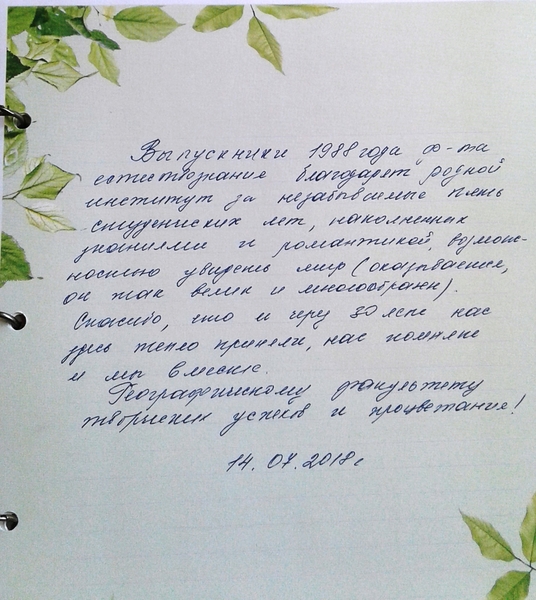 Выпускники 1988 года ф-та
естествознание благодарят родной
институт за незабываемые пять
студенческих лет, наполненных
знаниями и романтикой, возмож-
ностью увидеть мир (оказывается,
он так велик и многообразен).
Спасибо, что и через 30 лет нас
здесь тепло приняли, нас помнят
и мы вместе.
Географическому факультету
творческих успехов и процветание!
14.07.2018г